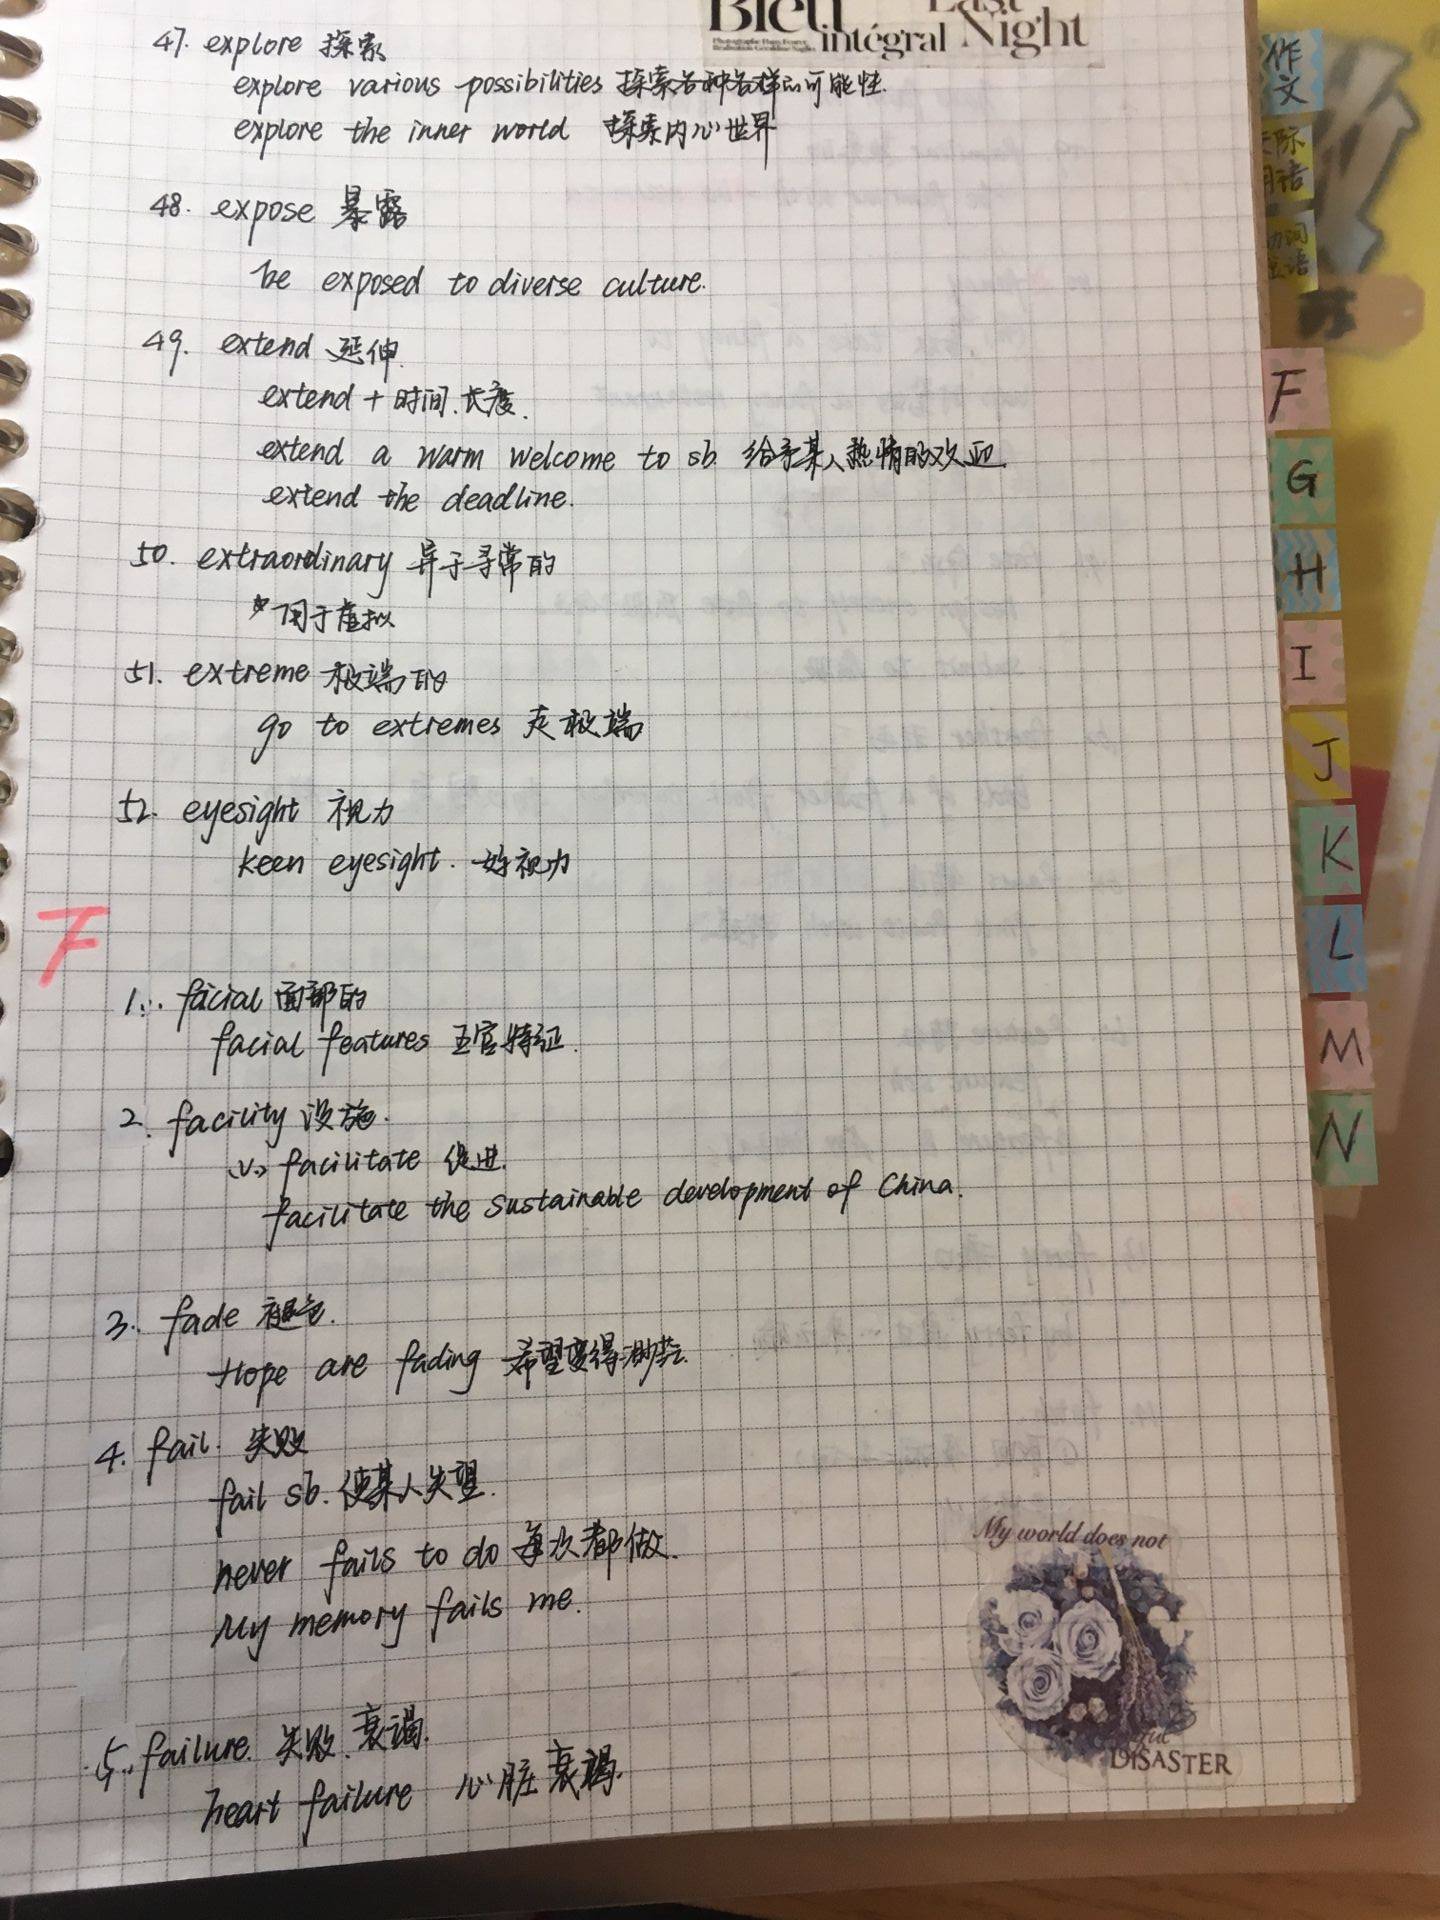 Bleu intégral
Last Night
47. explore 探索
explore various possibilities 探索各种各样的可能性.
explore the inner world 探索内心世界
48. expose 暴露
be exposed to diverse culture.
49. extend 延伸.
extend + 时间.长度.
extend a warm welcome to sb. 给予某人热情的欢迎
extend the deadline.
50. extraordinary 异于寻常的
用于虚拟
51. extreme 极端的
go to extremes 走极端
52. eyesight 视力
keen eyesight. 好视力
F
1. facial 面部的
facial features 五官特征.
2. facility 设施.
(v.) facilitate 促进.
facilitate the sustainable development of China.
3. fade 褪色.
Hope are fading 希望变得渺茫.
4. fail. 失败
fail sb. 使某人失望.
never fails to do 每次都做.
My memory fails me.
5. failure. 失败.衰竭.
heart failure 心脏衰竭.
My world does not
DISASTER
作文
F
G
H
I
J
K
L
M
N